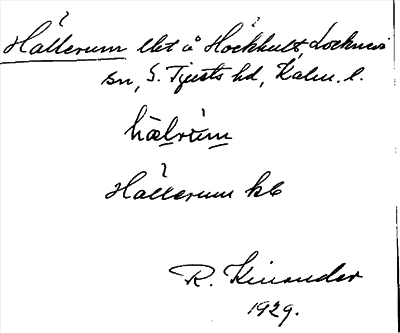 Hällerum lht å Höckhult, Locknevi
sn, S. Tjusts hd, Kalm. l.
hælrùm
Hällerum kb
R. Kinander
1929.